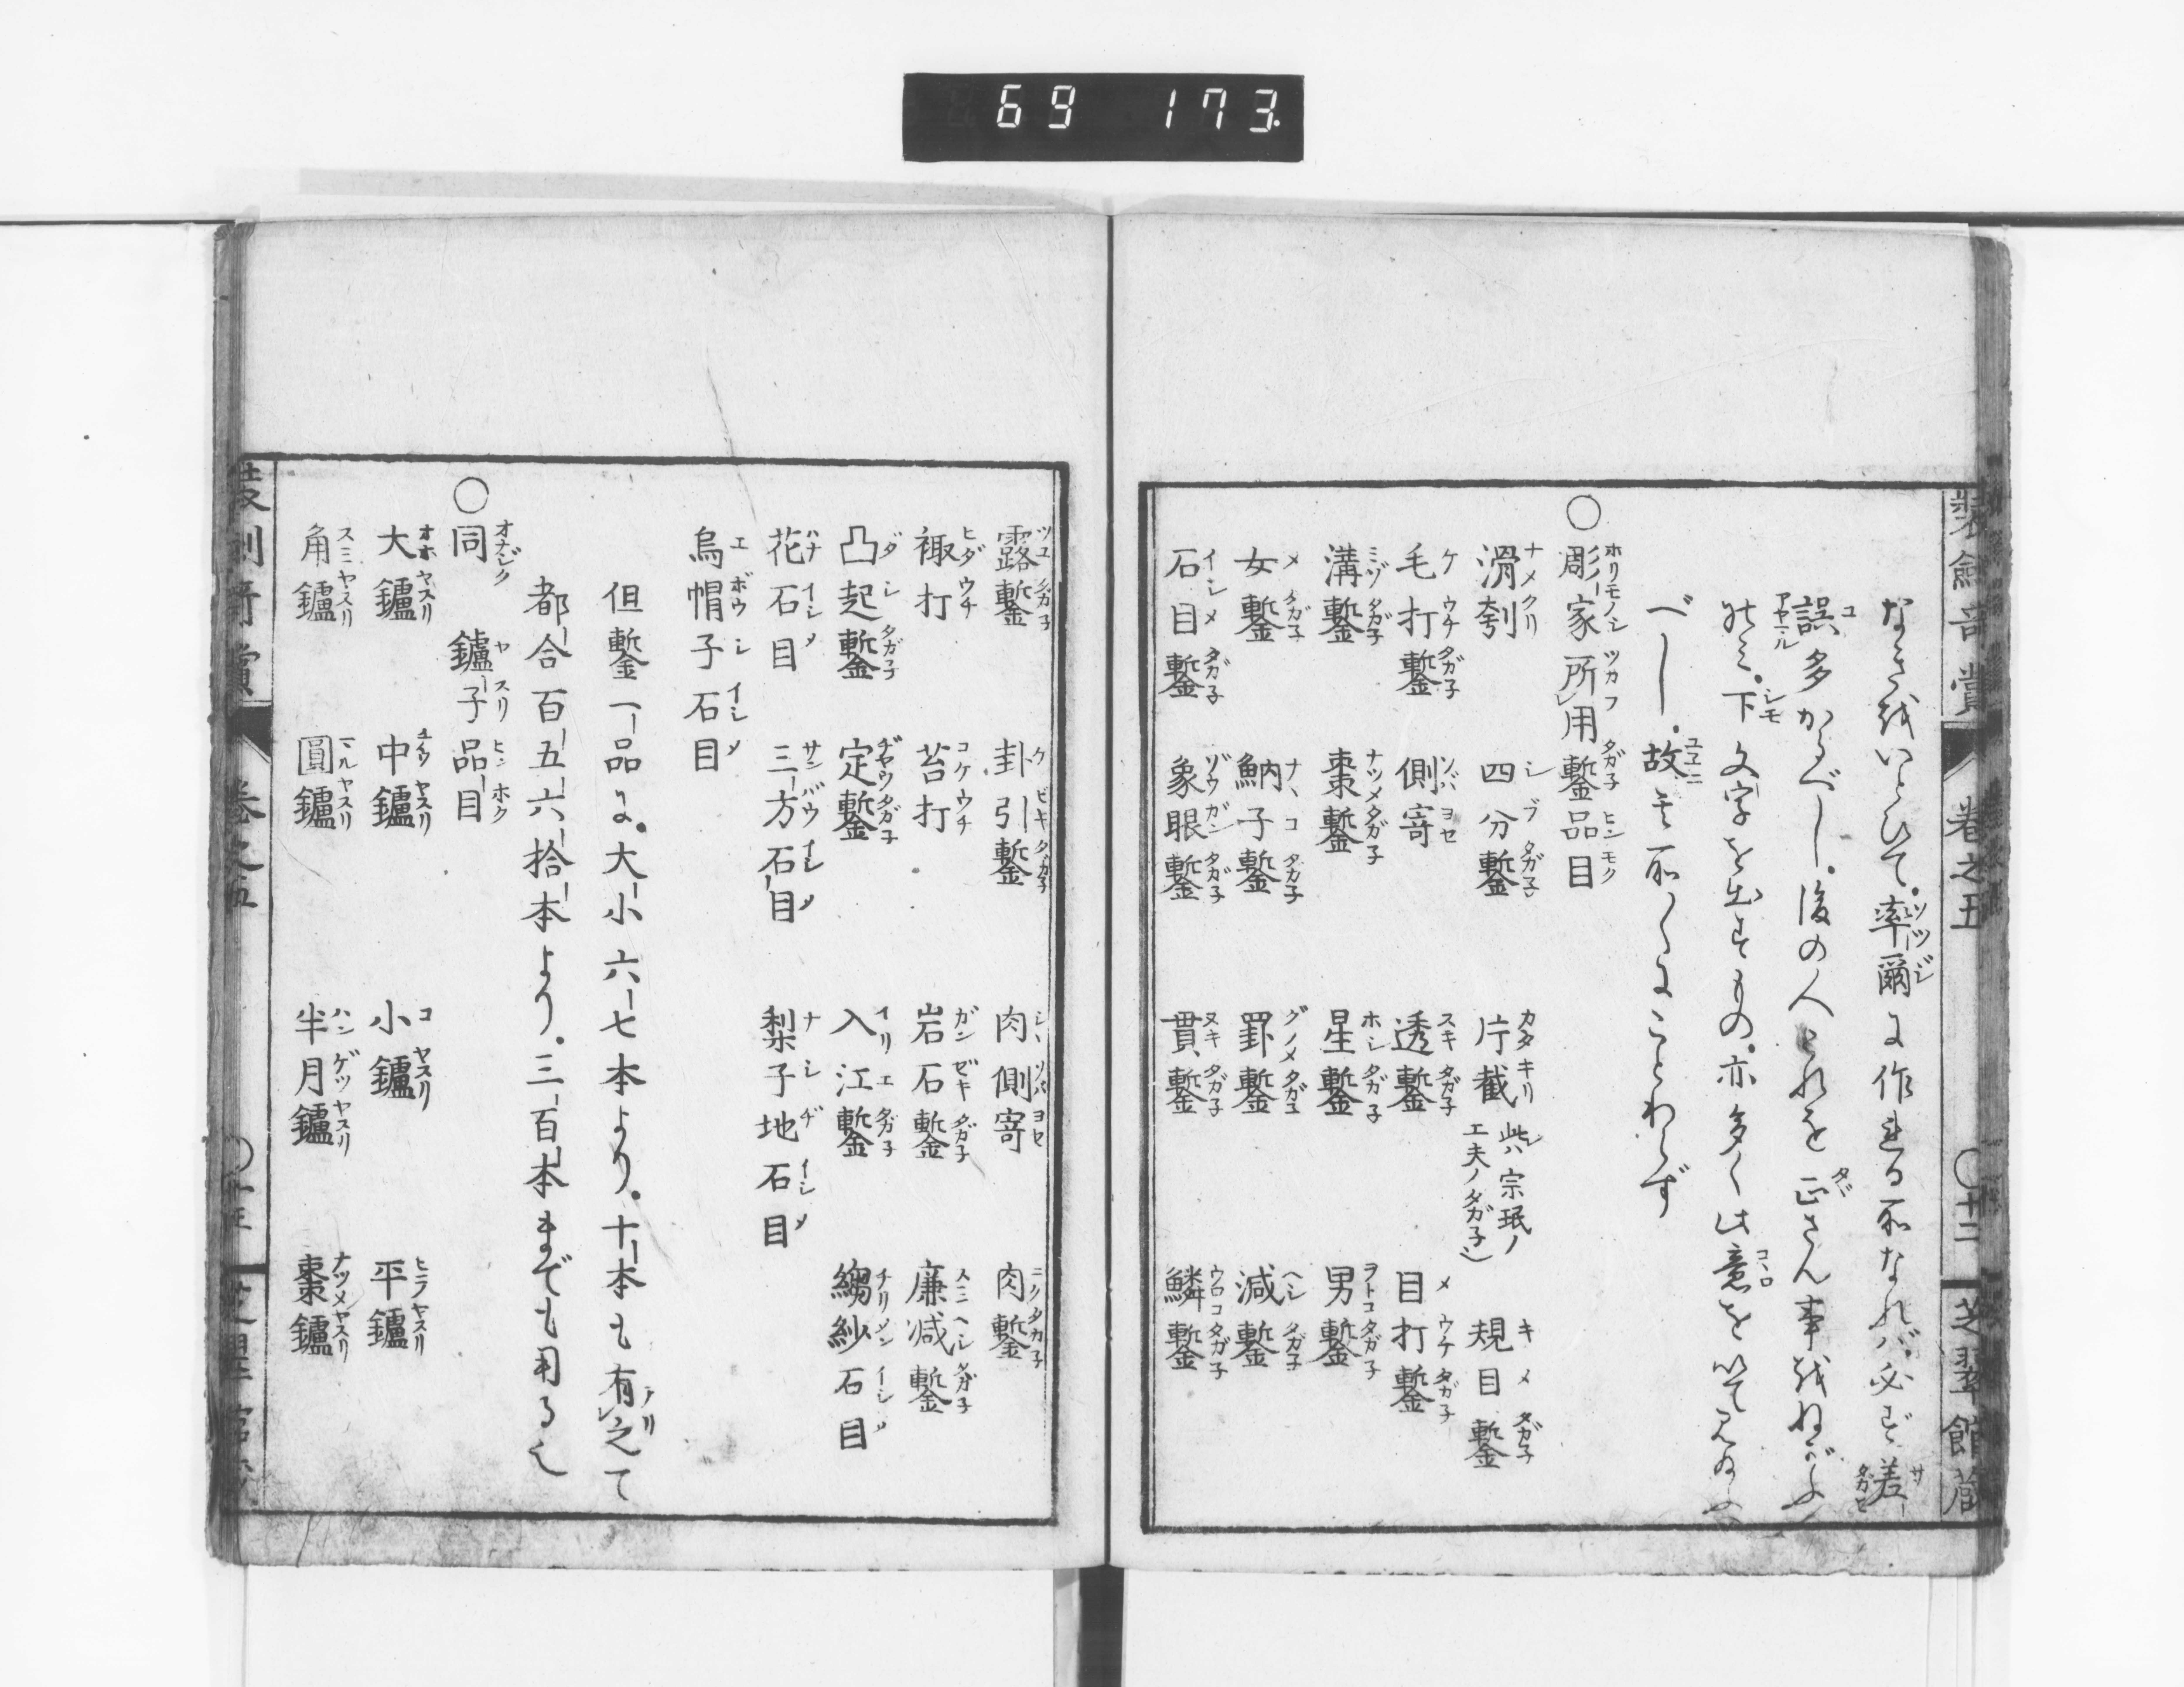 69 173.
装劍奇賞 卷之五 〇十二 芝翠館蔵
なきをいとひて。率爾に作れる所なれバ。必ず差
誤多かるべし。後の人これを正さん事をねがふ
のミ。下文字を出すもの。亦多く此意を以て見る
べし。故に所々にことわらず
〇彫家所用鏨品目
滑刳 四分鏨 片截 此ハ宗珉ノ工夫ノタガ子 規目鏨
毛打鏨 側寄 透鏨 目打鏨
溝鏨 棗鏨 星鏨 男鏨
女鏨 魶子鏨 罫鏨 減鏨
石目鏨 象眼鏨 貫鏨 鱗鏨
露鏨 卦引鏨 肉側寄 肉鏨
襒打 苔打 岩石鏨 廉減鏨
凸起鏨 定鏨 入江鏨 縐紗石目
花石目 三方石目 梨子地石目
烏帽子石目
但鏨一品に。大小六七本より。十本も有之て
都合百五六拾本より。三百本までも用る也
〇同 鑪子品目
大鑪 中鑪 小鑪 平鑪
角鑪 圓鑪 半月鑪 棗鑪
卷之五